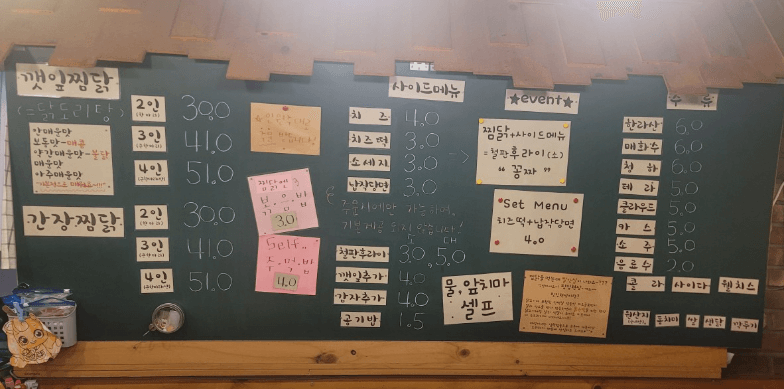 깻잎찜닭
(=닭도리탕)
안매운맛
보통맛-매콤
약간매운맛-불닭
매운맛
아주매운맛
2인 30.0
3인 41.0
4인 51.0
간장.찜닭
2인 30.0
3인 41.0
4인 51.0
찜닭에는
볶음밥
3.0
Self
주먹밥
4.0
사이드메뉴
치즈 4.0
치즈떡 3.0
소세지 3.0
납작당면 3.0
주문시에만 가능하며,
소 대
철판후라이 3.0 5.0
깻잎추가 4.0
감자추가 4.0
공기밥 1.5
★event★
찜닭+사이드메뉴
=철판후라이(소)
"꽁짜"
Set Menu
치즈떡+납작당면
4.0
물, 앞치마
셀프
한라산 6.0
매화수 6.0
청하 6.0
테라 5.0
클라우드 5.0
카스 5.0
소주 5.0
음료수 2.0
콜라 사이다 웰치스
원산지 쌀